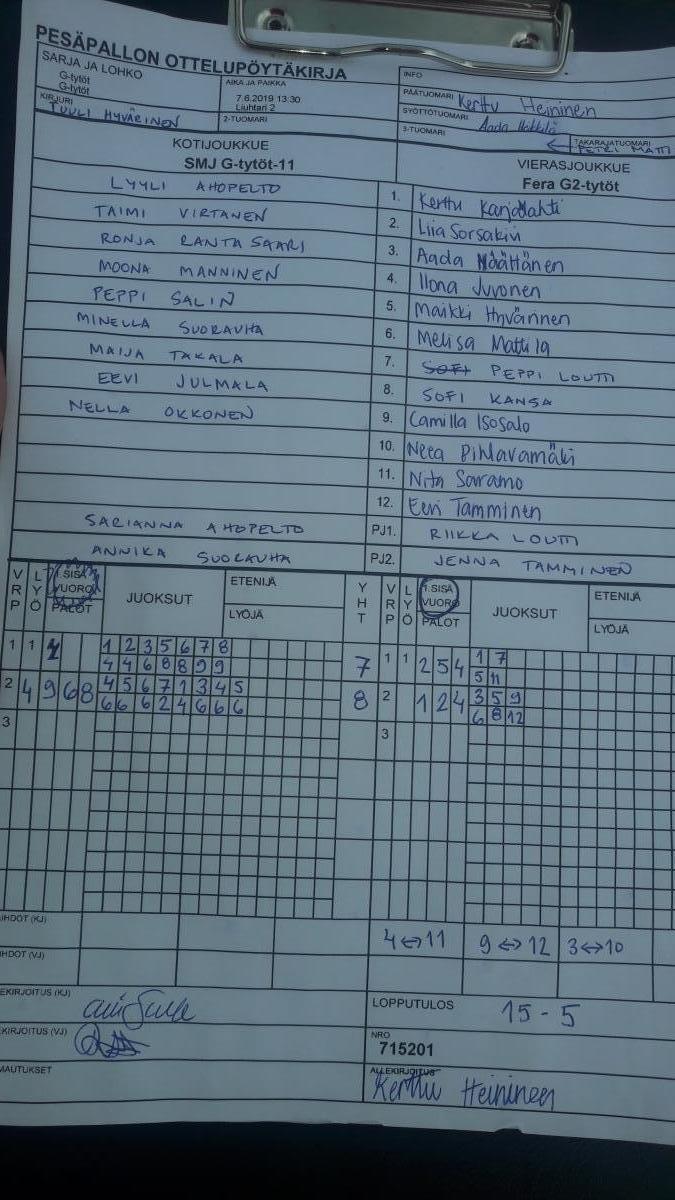 PESÄPALLON OTTELUPÖYTÄKIRJA
SARJA JA LOHKO
G-tytöt
G-tytöt
AIKA JA PAIKKA
7.6.2019 13:30
Liuhtari 2
INFO
PÄÄTUOMARI Kerttu Heininen
KIRJURI
TUULI HYVÄRINEN
2-TUOMARI
SYÖTTÖTUOMARI Aada
3-TUOMARI
TAKARAJATUOMARI
PETRI MATTI
KOTIJOUKKUE
SMJ G-tytöt-11
VIERASJOUKKUE
Fera G2-tytöt
LYYLI AHOPELTO 1. Kerttu Karjalahti
TAIMI VIRTANEN 2. Liia Sorsakivi
RONJA RANTASAARI 3. Aada Määttänen
MOONA MANNINEN 4. Ilona Juvonen
PEPPI SALIN 5. Maikki Hyvärinen
MINELLA SUORAUHA 6. Melisa Mattila
MAIJA TAKALA 7. SOFI PEPPI LOUTTI
EEVI JULMALA 8. SOFI KANSA
NELLA OKKONEN 9. Camilla Isosalo
10. Neea Pihlavamäki
11. Nita Saramo
12. Eevi Tamminen
SARIANNA AHOPELTO PJ1. RIIKKA LOUTTI
ANNIKA SUORAUHA PJ2. JENNA TAMMINEN
VRP LYÖ 1.SISÄ VUORO PALOT JUOKSUT ETENIJÄ LYÖJÄ YHT VRP LYÖ 1.SISÄ VUORO PALOT JUOKSUT ETENIJÄ LYÖJÄ
1 1 1 2 3 5 6 7 8 1 1 2 5 4 1 7
4 4 6 8 8 9 9 7 5 11
2 4 9 6 8 4 5 6 7 1 3 4 5 8 2 1 2 4 3 5 9
6 6 6 2 4 6 6 6 6 8 12
3 3
IHDOT (KJ) 4 ↔ 11 9 ↔ 12 3 ↔ 10
IHDOT (VJ)
EKIRJOITUS (KJ)
LOPPUTULOS 15 - 5
EKIRJOITUS (VJ)
NRO
715201
MAUTUKSET
ALLEKIRJOITUS
Kerttu Heininen